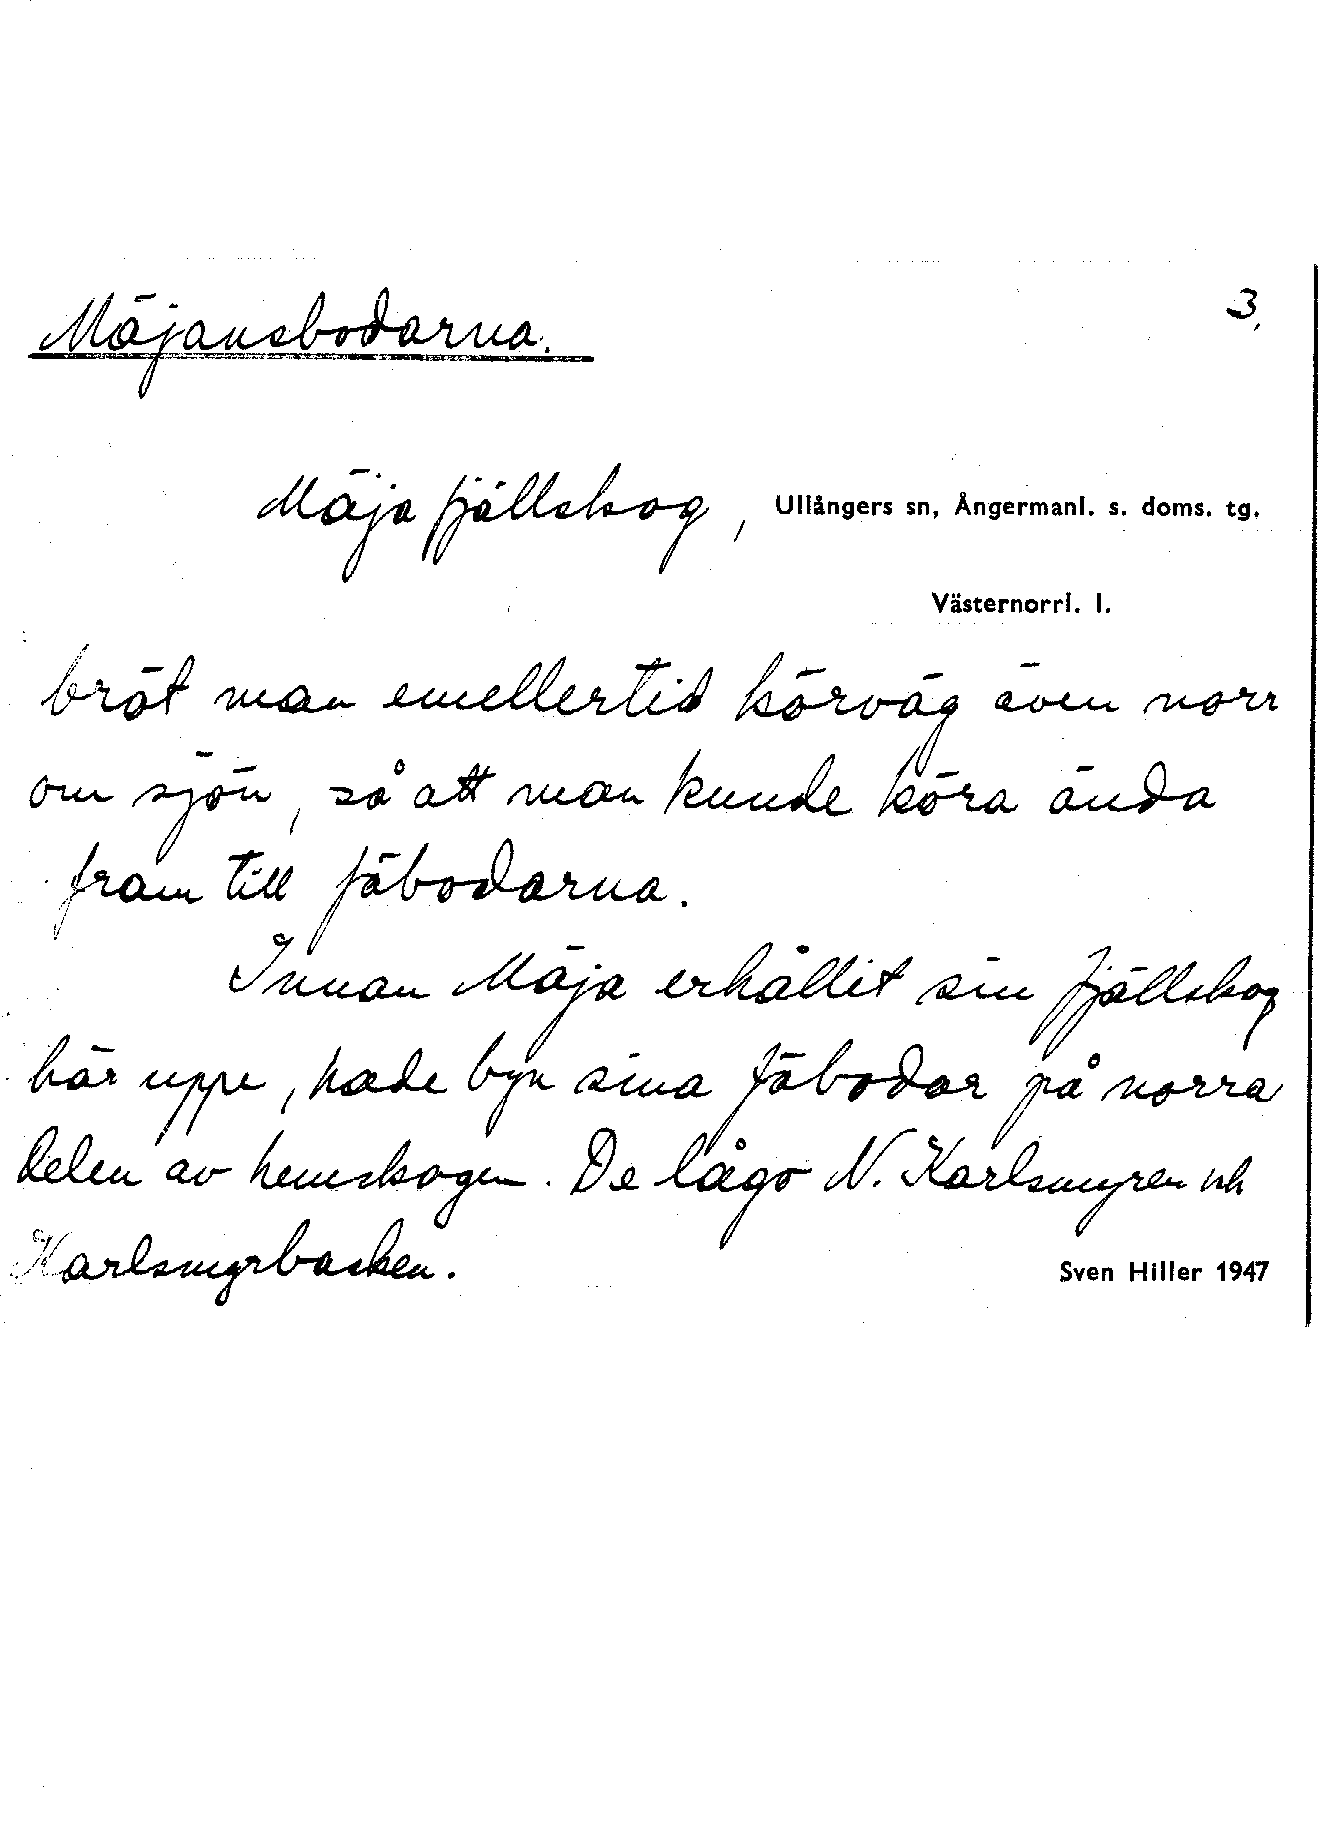 Mäjansbodarna.
3.
Mäja fjällskog, Ullångers sn, Ångermanl. s. doms. tg.
Västernorrl. l.
bröt man emellertid körväg även norr
om sjön, så att man kunde köra ända
fram till fäbodarna.
Innan Mäja erhållit sin fjällskog
här uppe, hade byn sina fäbodar på norra
delen av hemskogen. De lågo N. Karlsmyren och
Karlsmyrbacken.
Sven Hiller 1947